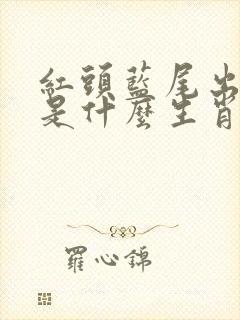 紅頭藍尾出
是什麼生肖
羅心錦